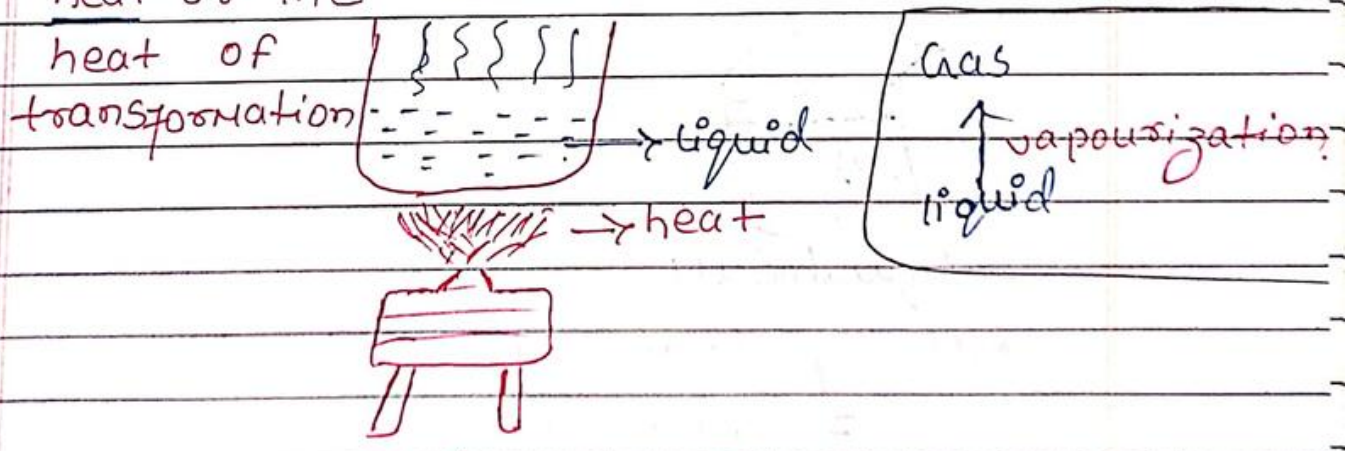 heat of
transformation
→ liquid
→ heat
Gas
↑ vapourization
liquid